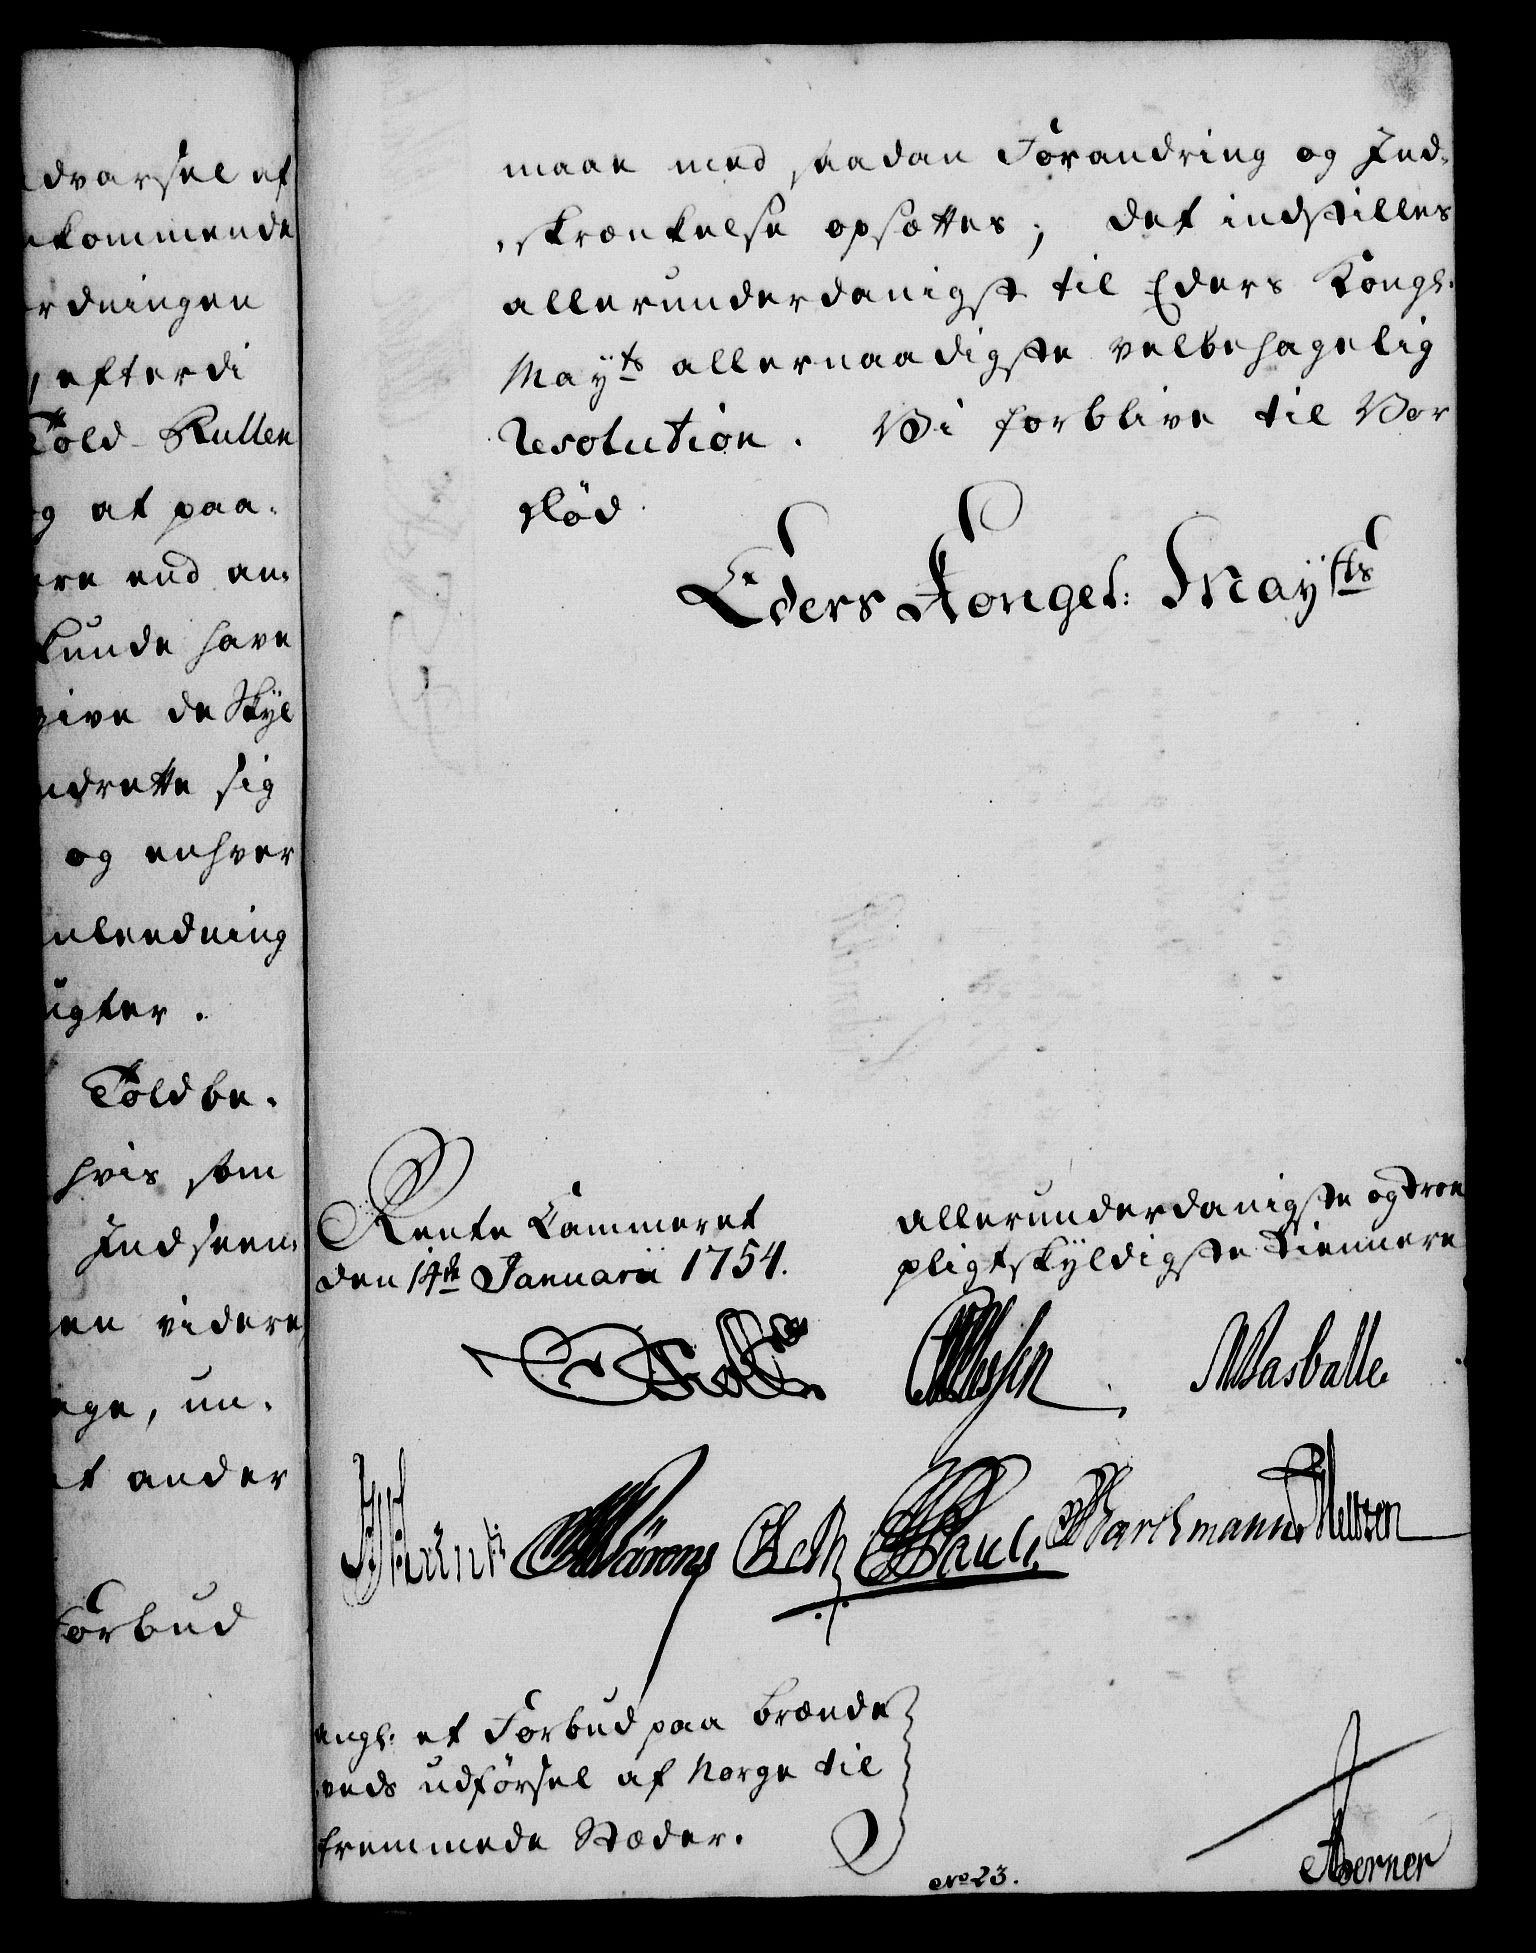 dvarsel af
kommende
rdningen
efterdi
Told-Rullen
og at paa-
ere end an-
kunde have
give de Skyl
ndrette sig
og enhver
nleedning
ugter.
Toldbe-
hvis som
Indseen-
en videre
ege, un-
et ander
Forbud
maae med saadan Forandring og Ind-
skrænkelse opsættes; det indstilles
allerunderdanigst til Eders Kongl:
Mayts allernaadigste velbehagelig
Resolution. Vi forblive til Vor
død
Eders Kongel: Maytts
Rente Cammeret
den 14de Januarii 1754.
allerunderdanigste og troe
pligtskyldigste Tiennere
Masballe
Pauli Barchmann
angl: et Forbud paa Brænde
veds udførsel af Norge til
fremmede Stæder.
No 23.
Berner